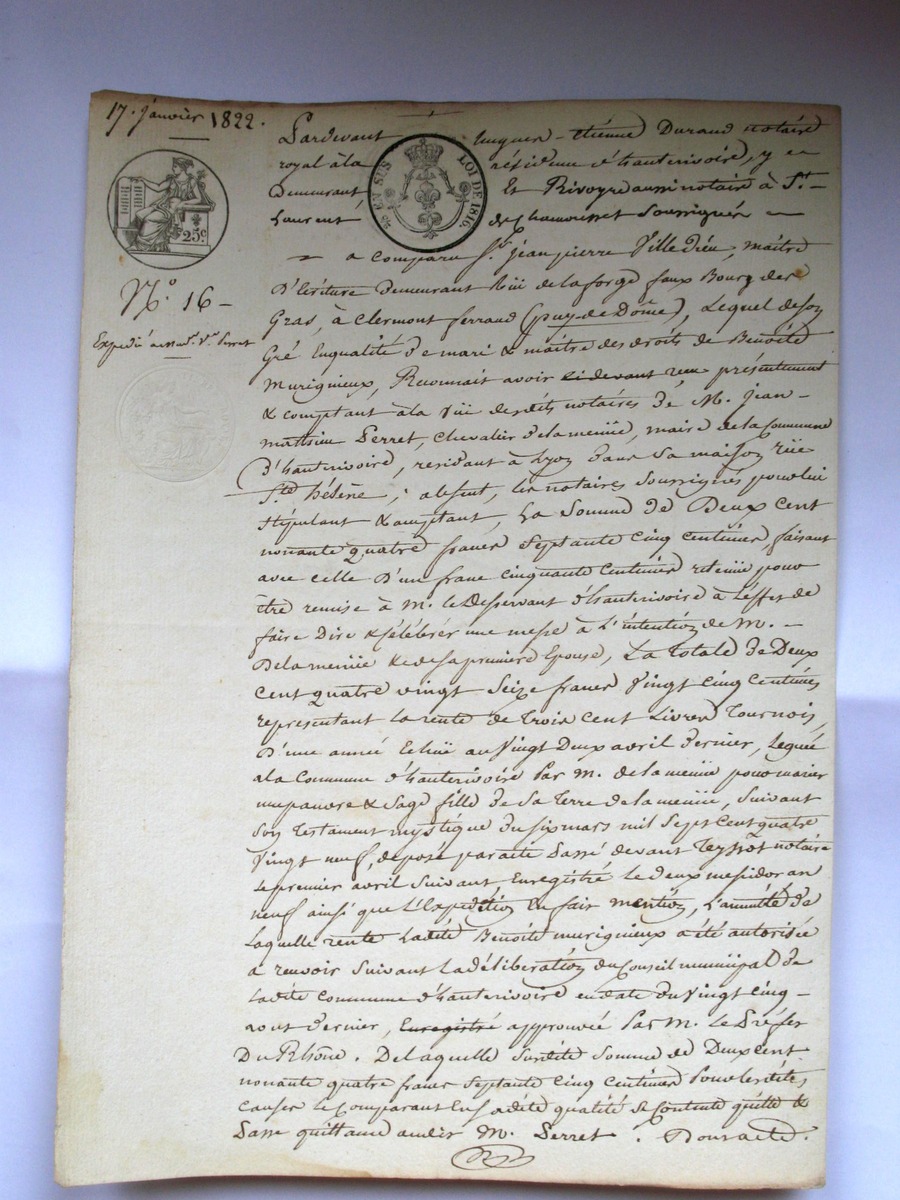 17. janvier 1822.
Pardevant hugues-étienne Durand notaire
royal à la résidence d'hauterivoire, y
Demeurant Et Rivoyre aussi notaire à St.
Laurent de Chamousset soussignés
EN SUS
LOI DE 1816.
25c
a comparu Sr. jean pierre Ville Dieu, maître
D'Ecriture Demeurant Rüe de la forge faux Bourg des
Gras, à Clermont ferrand (puy de Dôme), Lequel de son
Gré En qualité de mari & maître des droits de Benoîte
Murignieux, Reconnait avoir présentement
N.° 16 -
Expédié Perret
& comptant à la vüe desdits notaires de M. jean-
mathieu Perret, chevalier delameniie, maire de la Commune
D'hauterivoire, résidant à Lyon dans sa maison rüe
Ste. hélène, absent, les notaires soussignés pour lui
stipulant & acceptant, La Somme de Deux cent
nonante quatre francs septante cinq centimes, faisant
avec celle D'un franc cinquante centimes retenüe pour
être remise à M. le Desservant d'hauterivoire à L'effet de
faire Dire & célébrer une messe à L'intention de M. -
Delameniie & de sa première Epouse, La Totale de Deux
cent quatre vingt Seize francs Vingt cinq centimes
représentant La rente de Trois cent Livres Tournois,
D'une année Echüe au Vingt Deux avril dernier, Leguée
à la Commune d'hauterivoire Par M. delameniie pour marier
une pauvre & sage fille de Sa Terre delameniie, Suivant
Son Testament mystique du six mars mil Sept Cent quatre
Vingt neuf, déposé par acte Passé devant notaire
le premier avril Suivant Enregistré le deux messidor an
neuf ainsi que L'Expédition En fait mention, L'annuité de
Laquelle rente Ladite Benoîte murignieux a été autorisée
à recevoir Suivant La déliberation du Conseil municipal de
Ladite Commune d'hauterivoire en date du Vingt Cinq -
aout dernier, Enregistré approuvée Par M. le Préfet
Du Rhône. De laquelle Susdite Somme de Deux cent
nonante quatre francs Septante cinq centimes Pour lesdites
causes le Comparant En Sadite qualité Se Contente quitte &
Passe quittance audit M. Perret. Dont acte.